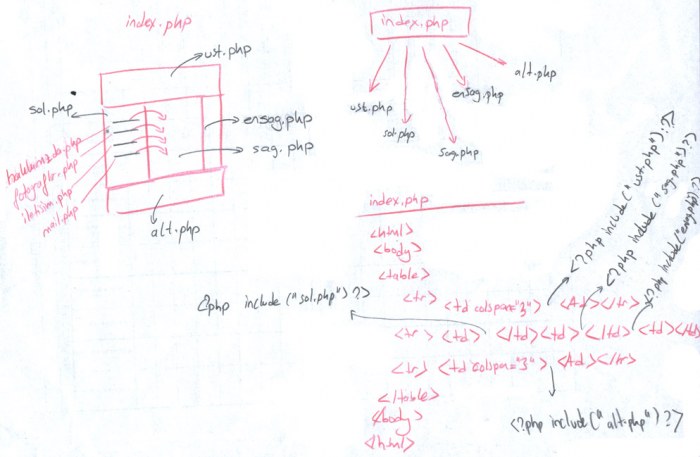 index.php
ust.php
sol.php
ensag.php
sag.php
hakkimizda.php
fotograflr.php
iletisim.php
mail.php
alt.php
index.php
ust.php
sol.php
sag.php
ensag.php
alt.php
index.php
<html>
<body>
<table>
<tr> <td colspan="3"> </td></tr>
<?php include("ust.php");?>
<tr> <td> </td><td> </td> <td></td>
<?php include ("sol.php") ?>
<?php include ("sag.php");?>
<?php include("ensag.php");?>
<tr> <td colspan="3"> </td></tr>
<?php include("alt.php") ?>
</table>
</body>
</html>